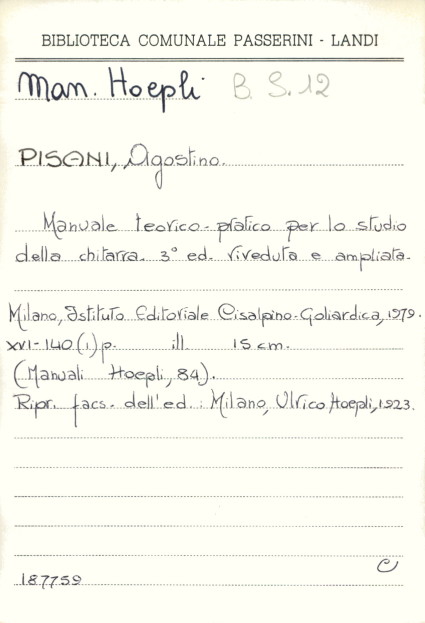 BIBLIOTECA COMUNALE PASSERINI - LANDI
Man. Hoepli B. S. 12
PISANI, Agostino.
Manuale teorico-pratico per lo studio
della chitarra. 3° ed. riveduta e ampliata.
Milano, Istituto Editoriale Cisalpino-Goliardica, 1979.
XVI-140 (1) p. ill 15 cm.
(Manuali Hoepli, 84).
Ripr. facs. dell'ed.: Milano, Ulrico Hoepli, 1923.
C
187759